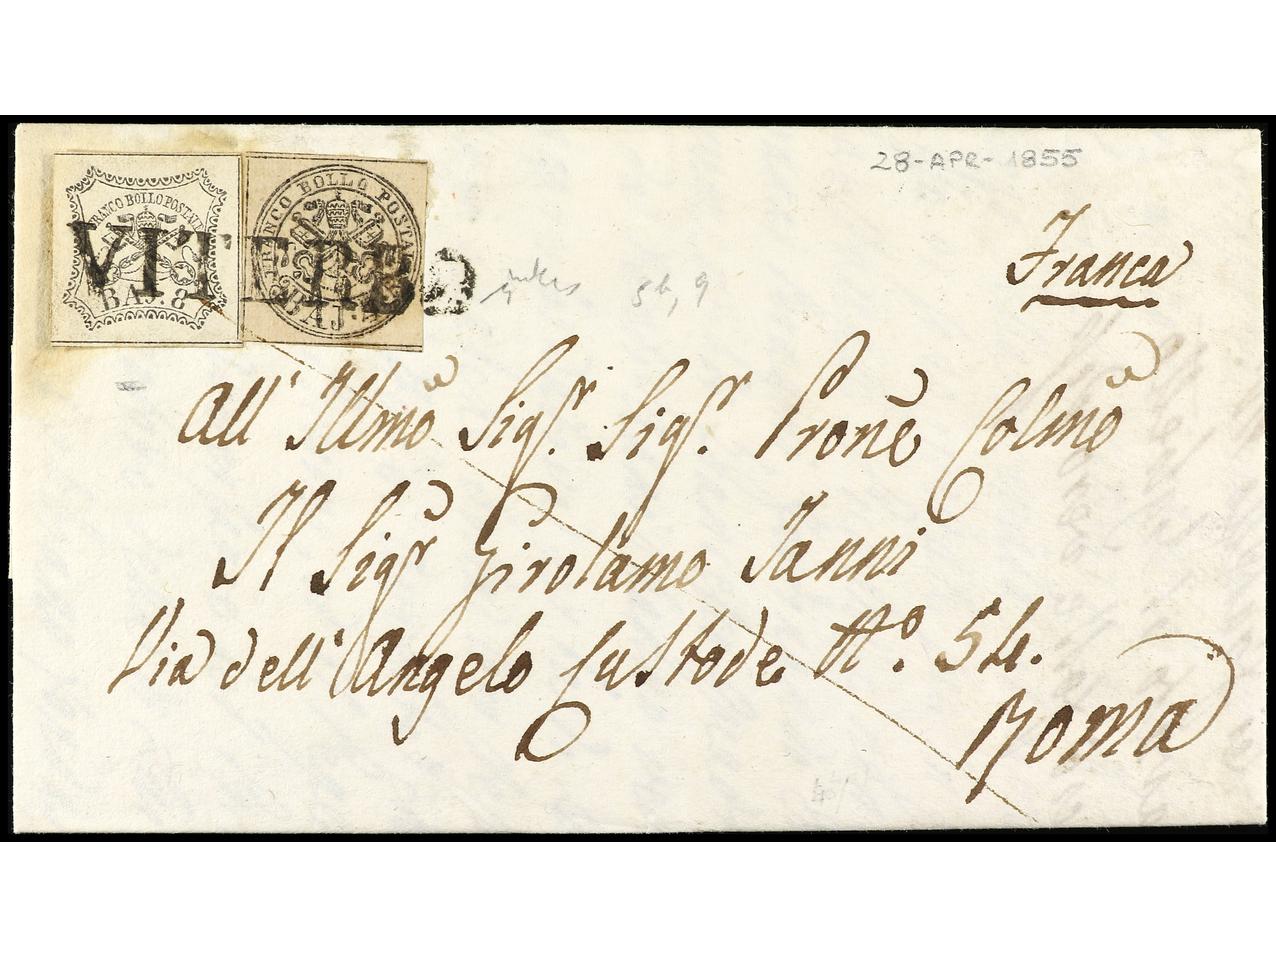 28-APR-1855
Franca
FRANCO BOLLO POSTALE
BAJ. 8
FRANCO BOLLO POSTALE
BAJ.
VITERBO
5b, 9
All' Illmõ Sigr. Sigr. Pronẽ Colmõ
Il Sigr Girolamo Ianni
Via dell' Angelo Custode No. 54.
Roma